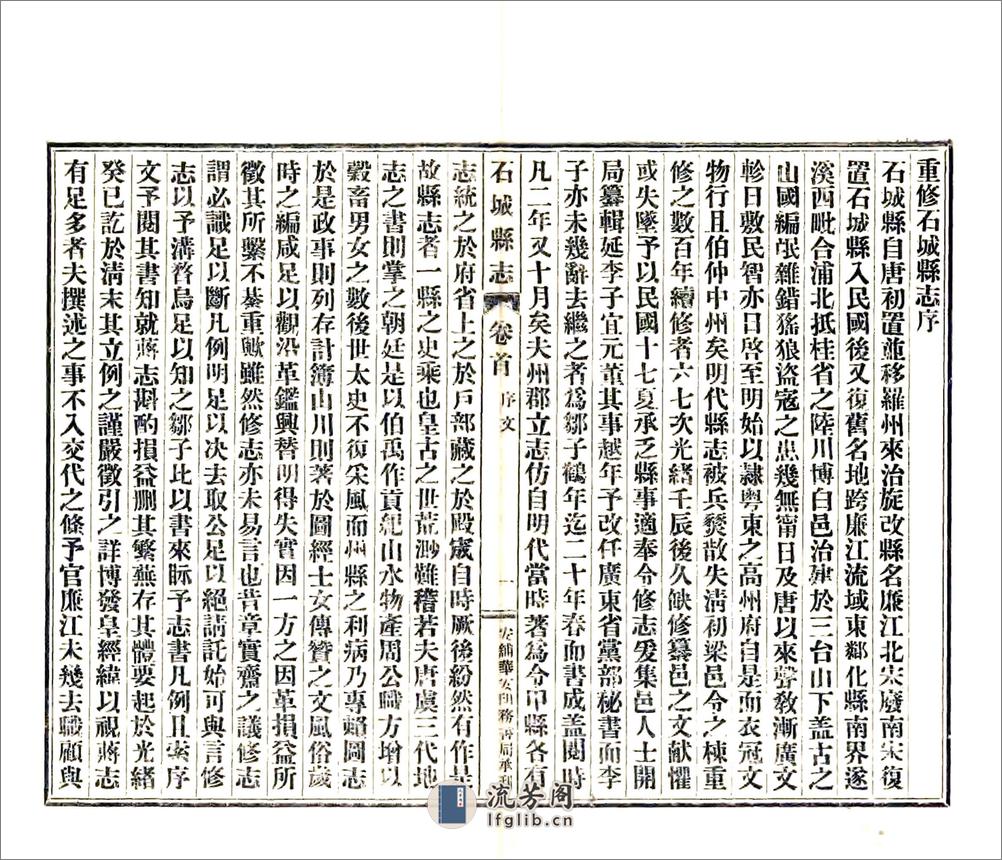 重修石城縣志序
石城縣自唐初置並移羅州來治旋改縣名廉江北宋廢南宋復
置石城縣入民國後又復舊名地跨廉江流域東鄰化縣南界遂
溪西毗合浦北抵桂省之陸川博白邑治建於三台山下蓋古之
山國編氓雜錯猺狼盜寇之患幾無甯日及唐以來聲教漸廣文
軫日敷民智亦日啓至明始以隷粤東之高州府自是而衣冠文
物行且伯仲中州矣明代縣志被兵燹散失清初梁邑令之棟重
修之數百年續修者六七次光緒壬辰後久缺修纂邑之文献懼
或失墜予以民國十七夏承乏縣事適奉令修志爰集邑人士開
局纂輯延李子宜元董其事越年予改任廣東省黨部秘書而李
子亦未幾辭去繼之者爲鄒子鶴年迄二十年春而書成盖閱時
凡二年又十月矣夫州郡立志仿自明代當時著爲令甲縣各有
石城縣志
卷首
序文
一
安鋪華安印務書局承刊
志統之於府省上之於戶部藏之於殿宬自時厥後紛然有作是
故縣志者一縣之史乘也皇古之世荒渺難稽若夫唐虞三代地
志之書則掌之朝廷是以伯禹作貢紀山水物產周公職方增以
穀畜男女之數後世太史不復采風而州縣之利病乃專賴圖志
於是政事則列存計簿山川則著於圖經士女傳贊之文風俗歲
時之編咸足以觀沿革鑑興替明得失實因一方之因革損益所
徵其所繫不綦重歟雖然修志亦未易言也昔章實齋之議修志
謂必識足以斷凡例明足以决去取公足以絕請託始可與言修
志以予溝瞀烏足以知之鄒子比以書來眎予志書凡例且索序
文予閱其書知就蔣志斟酌損益删其繁蕪存其體要起於光緒
癸巳訖於淸末其立例之謹嚴徵引之詳博發皇經緯以視蔣志
有足多者夫撰述之事不入交代之條予官廉江未幾去職顧與
流芳阁
lfglib.cn